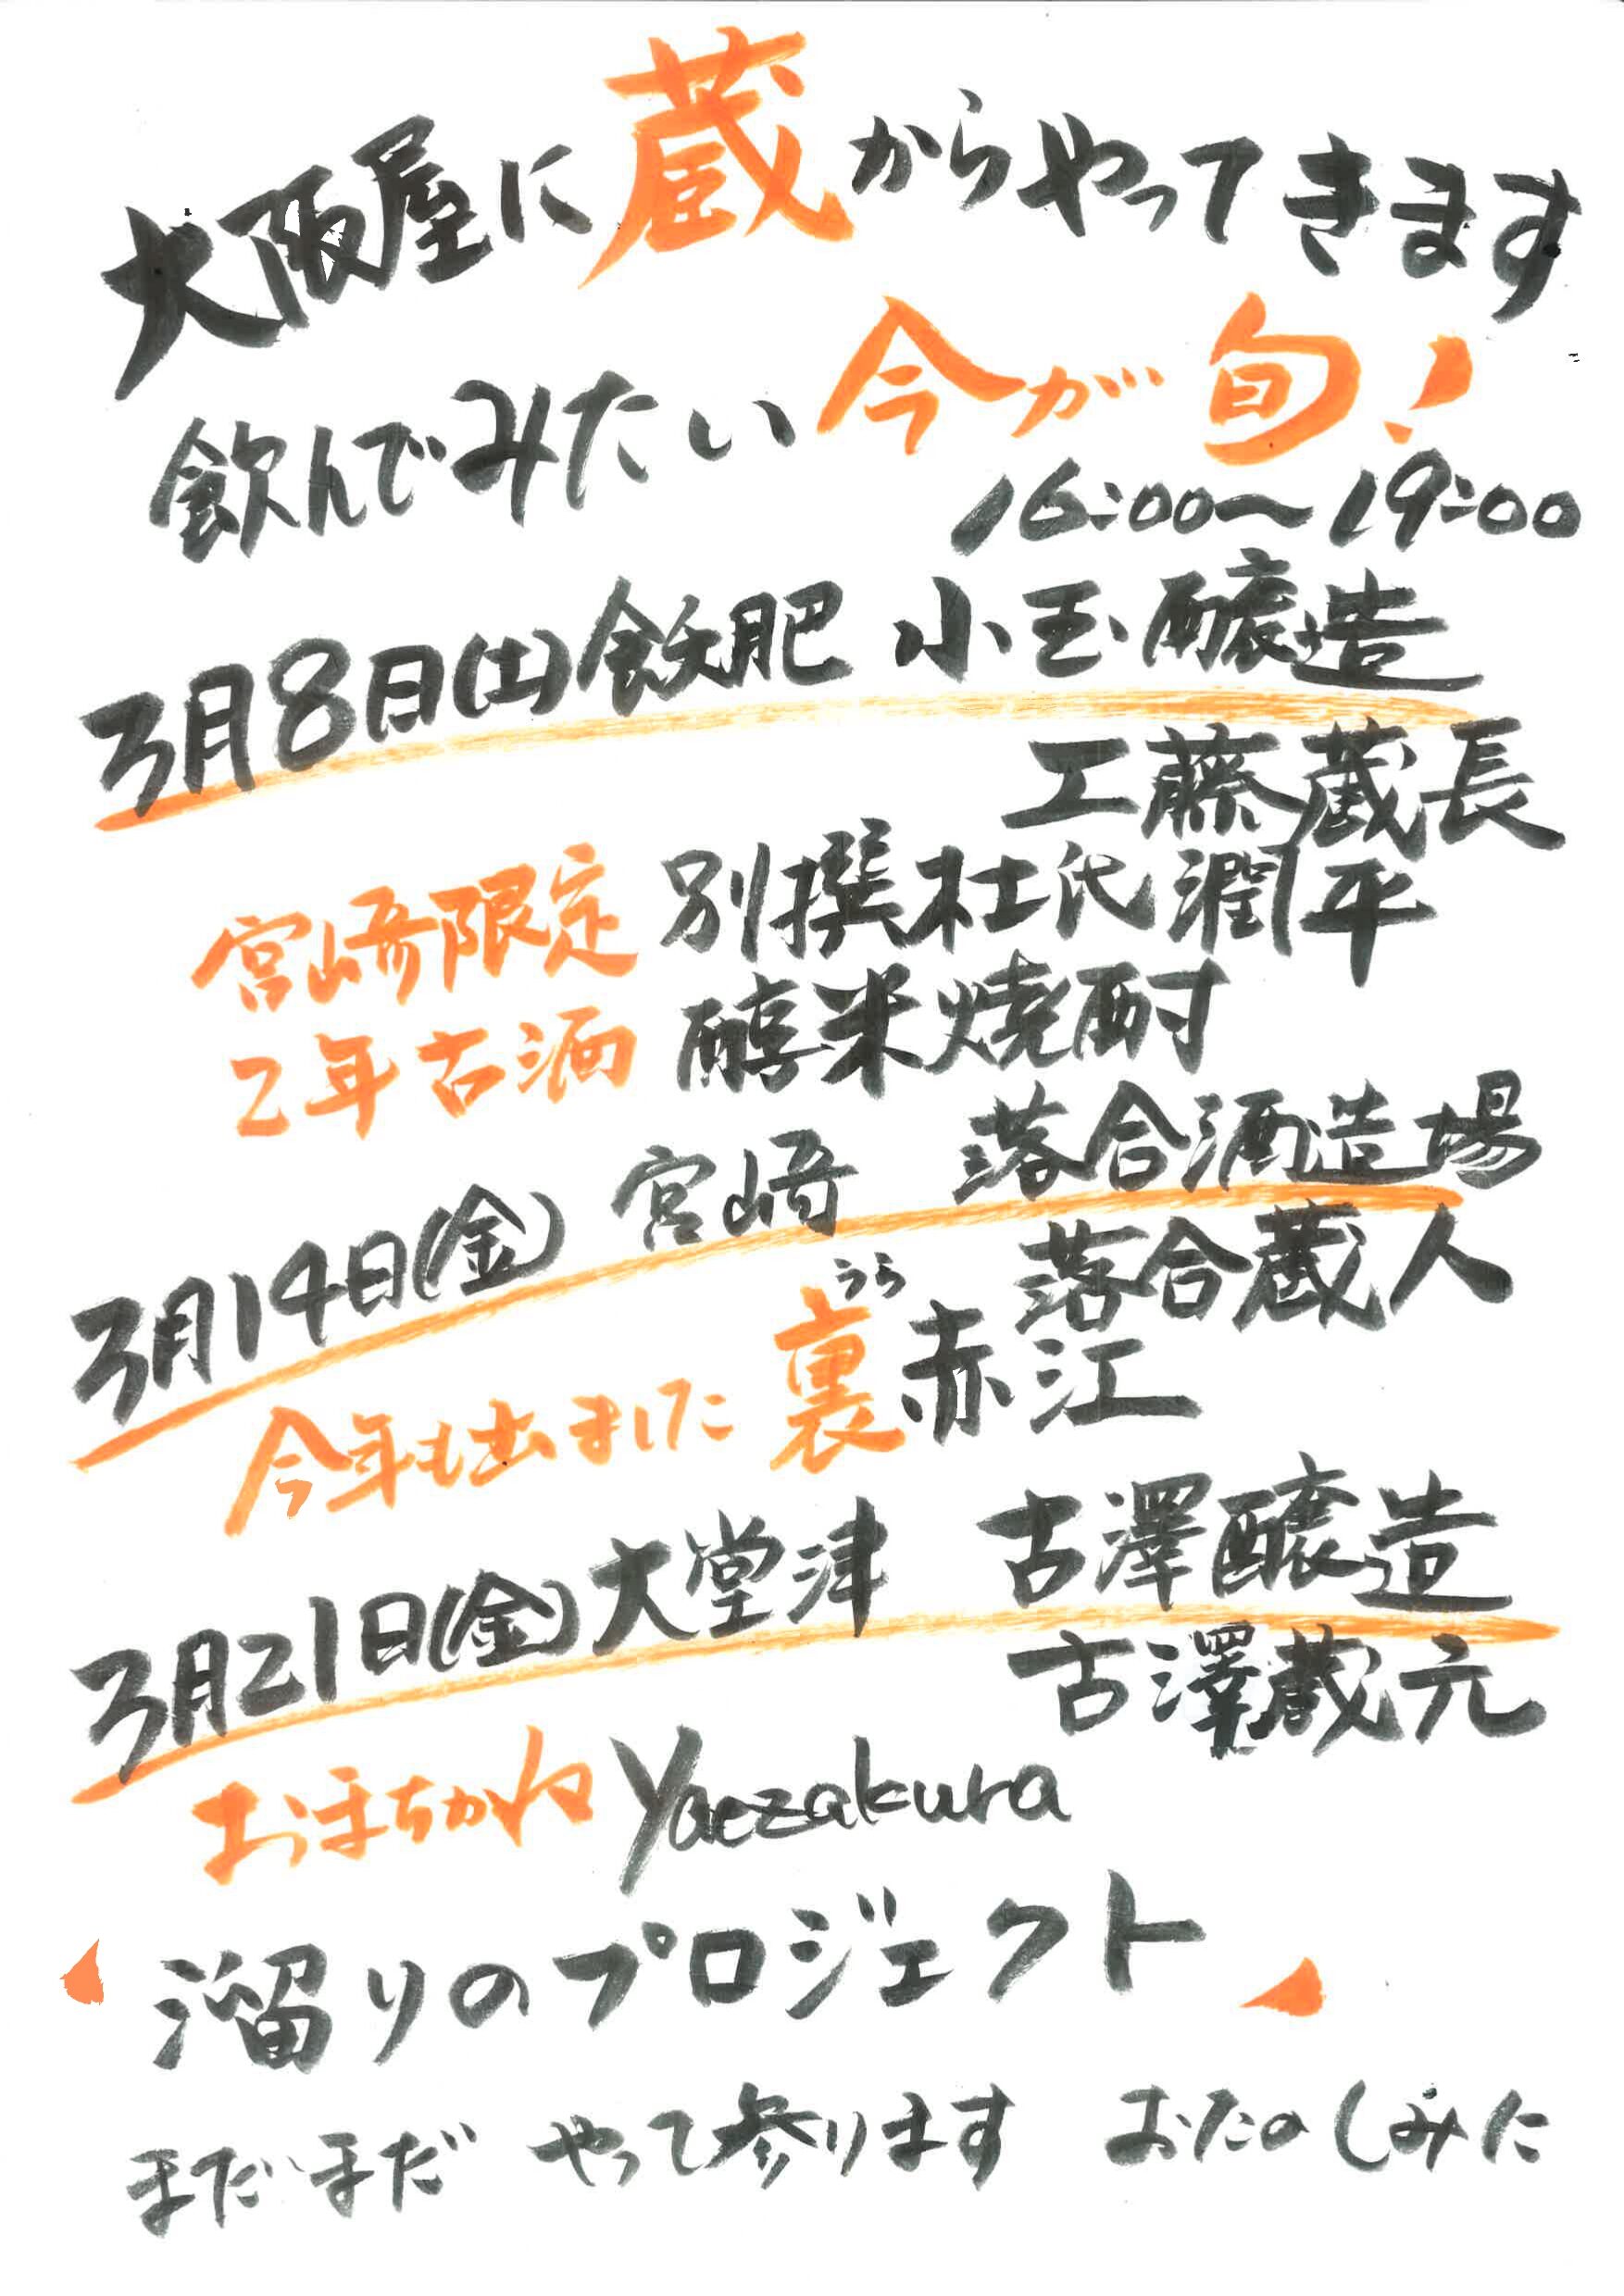 大阪屋に蔵からやってきます
飲んでみたい今が旬!
16:00〜19:00
3月8日(土)飫肥 小玉醸造
工藤蔵長
宮崎限定 別撰杜氏潤平
2年古酒 醇米焼酎
3月14日(金) 宮崎 落合酒造場
落合蔵人
うら
今年も出ました 裏赤江
3月21日(金)大堂津 古澤醸造
古澤蔵元
おまちかね Yaezakura
溜りのプロジェクト
まだまだ やって参ります おたのしみに